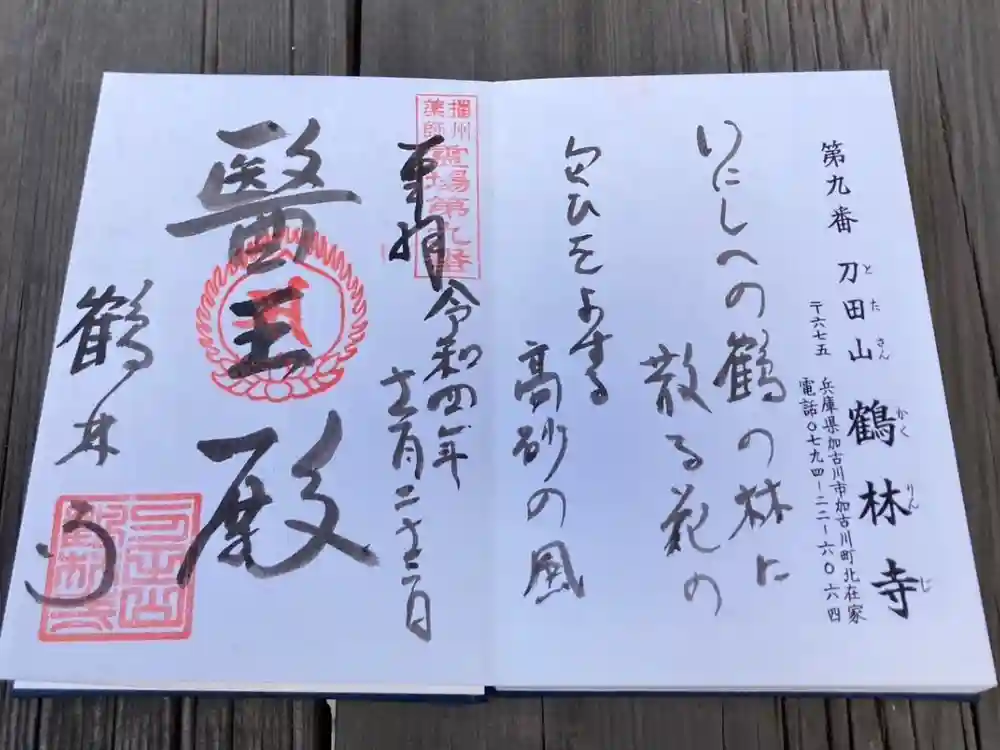 第九番 刀田山 鶴林寺
とたさん かくりんじ
〒六七五 兵庫県加古川市加古川町北在家
電話〇七九四ー二二ー六〇六四
いにしへの鶴の林に
散る花の
にほひをよする
高砂の風
播州薬師霊場第九番
奉拝
令和四年
十一月二十三日
醫王殿
鶴林寺